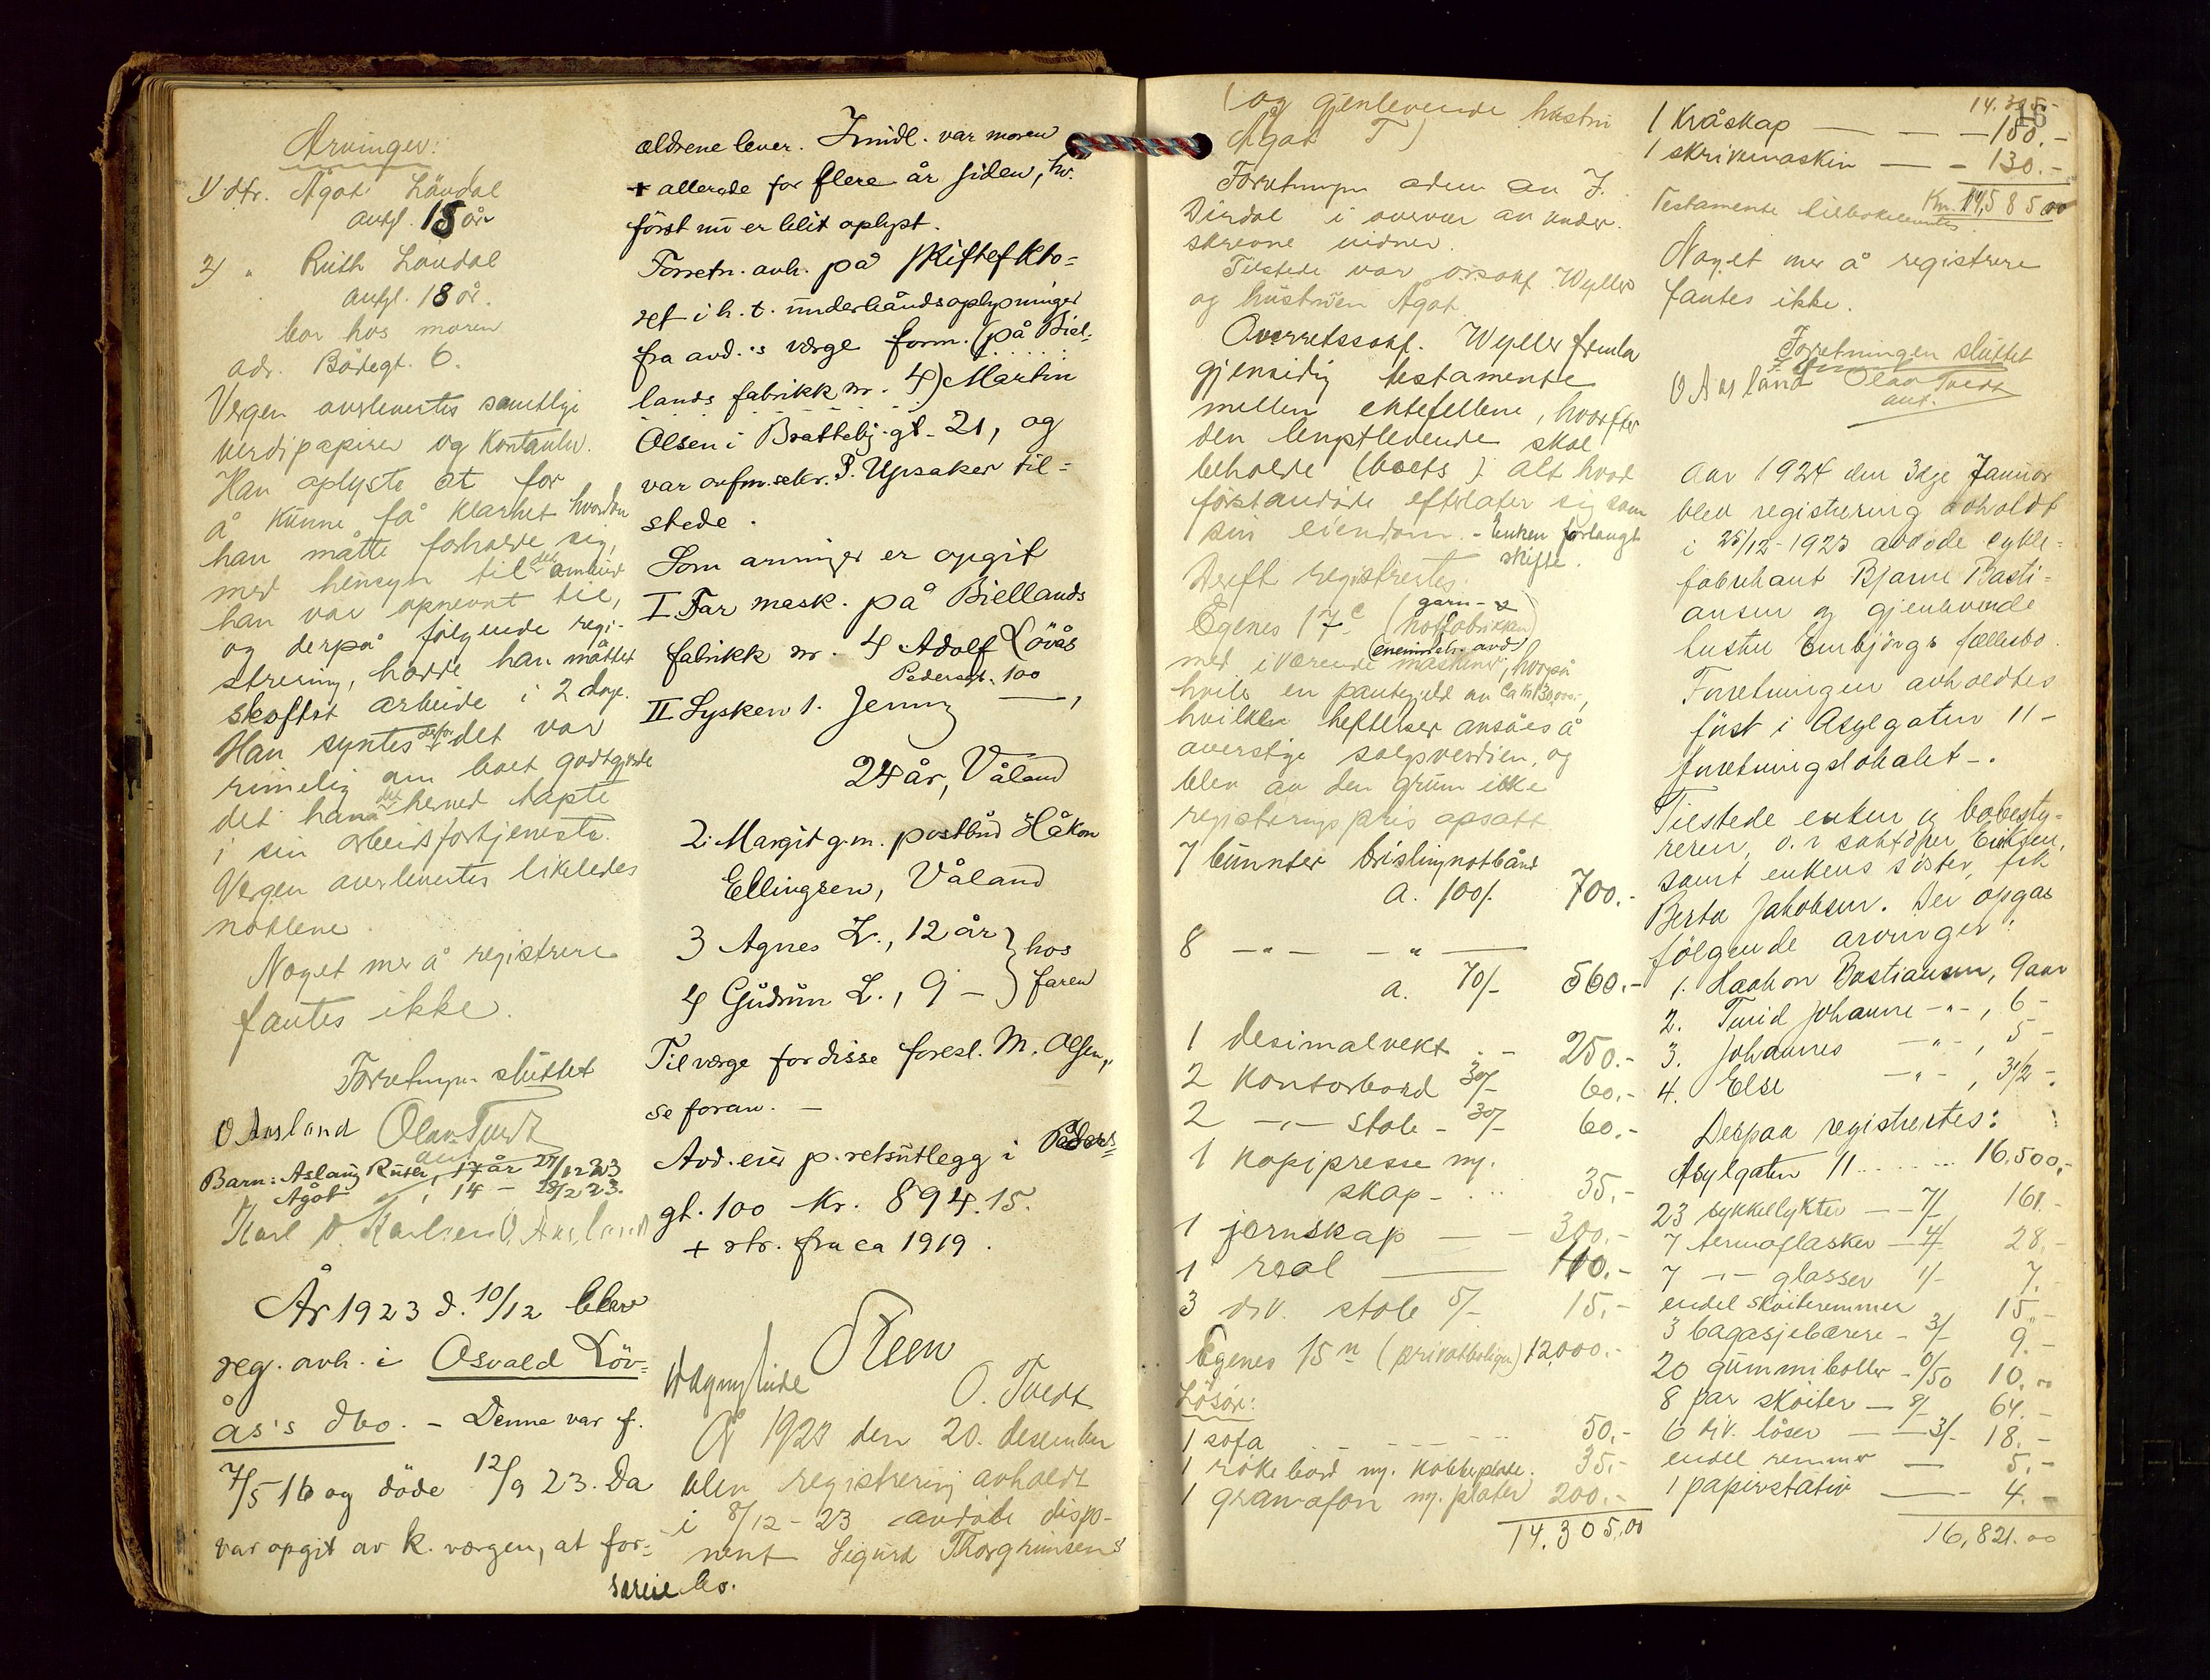 Arvinger:
1) dtr. Ågot Løvdal
antgl. 15 år
2) " Ruth Løvdal
antgl. 18 år.
bor hos moren
adr. Bådegt. 6.
Vergen overlevertes samtlige
verdipapirer og kontanter.
Han oplyste at for
å kunne få klarhet hvordan
han måtte forholde sig,
med hensyn til det ombud
han var opnevnt til,
og derpå følgende regi-
strering, hadde han måttet
skoftet arbeide i 2 dage.
Han syntes derfor det var
rimelig om boet godtgjorde
det han herved tapte
i sin arbeidsfortjeneste.
Vergen overlevertes likeledes
nøklene.
Noget mer å registrere
fantes ikke.
Forretningen sluttet
O Ausland Olav Tvedt
aut.
Barn: Aslaug Ruth, 17 år 27/12 23
Ågot , 14 – 28/2 23.
Karl O. Karlsen O. Ausland
År 1923 d. 10/12 blev
reg. avh. i Osvald Löv-
ås's dbo. – Denne var f.
7/5 16 og döde 12/9 23. Da
var opgit av k. vergen, at for-
ældrene lever. Imidl. var moren
+ allerede for flere år siden, hv.
først nu er blit oplyst.
Forretn. avh. på skiftefkto-
ret i h. t. underhåndsoplysninger
fra avd.'s værge form. (på Biel-
lands fabrikk nr. 4) Martin
Olsen i Brattebj.gt. 21, og
var oufm.sekr. P. Upsaker til-
stede.
Som arvinger er opgit
I Far mask. på Biellands
fabrikk nr. 4 Adolf Lövås
Pedersgt. 100
II Sysken 1. Jenny — ,
24 år, Våland
2. Margit g.m. postbud Håkon
Ellingsen, Våland
3 Agnes L., 12 år } hos
4 Gudrun L., 9 – } faren
Til verge for disse foresl. M. Olsen,
se foran. –
Avd. eier p. retsutlegg i Peders-
gt. 100 kr. 894.15.
+ rtr. fra ca 1919.
Steen
O. Tvedt
År 1923 den 20. desember
blev registrering avholdt
i 8/12 – 23 avdøde dispo-
nent Sigurd Thorgrimsens
særeie bo.
(og gjenlevende hustru
Ågot T)
Forretningen adm. av J.
Dirdal i overvær av under-
skrevne vidner.
Tilstede var orsakf. Wyller
og hustruen Ågot
Overretssakf. Wyller fremla
gjensidig testamente
mellem ektefellene, hvorefter
den lengstlevende skal
beholde (boets) alt hvad
førstavdøde efterlater sig som
sin eiendom. – Enken forlangt
skifte.
Dereft. registrertes.
Egenes 17 c (garn- &
notfabrikken)
med iværende maskiner, hvorpå
hviler en pantegjeld av ca kr 130.000.-,
hvilke heftelser ansåes å
overstige salgsverdien, og
blev av den grunn ikke
registrerings pris opsatt
7 bunnter brislingnotbånd
a. 100/- 700.-
8 – " – – " —
a. 70/- 560.-
1 desimalvekt - - 250.-
2 kontorbord 30/- 60.-
2 – " – stole - 30/- 60.-
1 kopipresse m.
skap - ... 35.-
1 jernskap — - 300.-
1 real — 100.-
3 div. stole 5/- 15.-
Egenes 15 n (privatboligen) 12,000.-
Løsøre:
1 sofa - - - - - 50.-
1 røkebord m. kobberplate. 35.-
1 gramofon m. plater 200.-
14.305.00
14.305.-
16
1 kråskap — — — 150.-
1 skrivemaskin — - 130.-
Kr. 14,585 00
Testamente tilbakelevertes
Noget mer å registrere
fantes ikke.
Forretningen sluttet
O Ausland Olav Tvedt
aut.
Aar 1924 den 3dje Januar
blev registrering avholdt
i 25/12-1923 avdøde cykle-
fabrikant Bjarne Basti-
ansen og gjenlevende
hustru Embjørgs fællesbo.
Forretningen avholdtes
først i Asylgaten 11 –
forretningslokalet –.
Tilstede enken og bobesty-
reren, o. r sakfører Eriksen,
samt enkens søster, frk
Berta Jakobsen. Der opgas
følgende arvinger:
1. Haakon Bastiansen, 9 aar
2. Turid Johanne – " – , 6 –
3. Johannes – " – , 5 –
4. Else – " – , 3 1/2 –.
Derpaa registrertes:
Asylgaten 11 ...... 16.500.-
23 sykkellykter – – 7/ 161.-
7 termoflasker – 4/ 28.-
7 – " – glasser 1/- 7.-
endel skøiteremmer 15.-
3 bagasjebærere – 3/ 9.-
20 gummiboller - 0/50 10.00
8 par skøiter – 8/ 64.-
6 div. låser – – 3/- 18.-
endel remmer — 5.-
1 papirstativ — 4.-
16,821.00